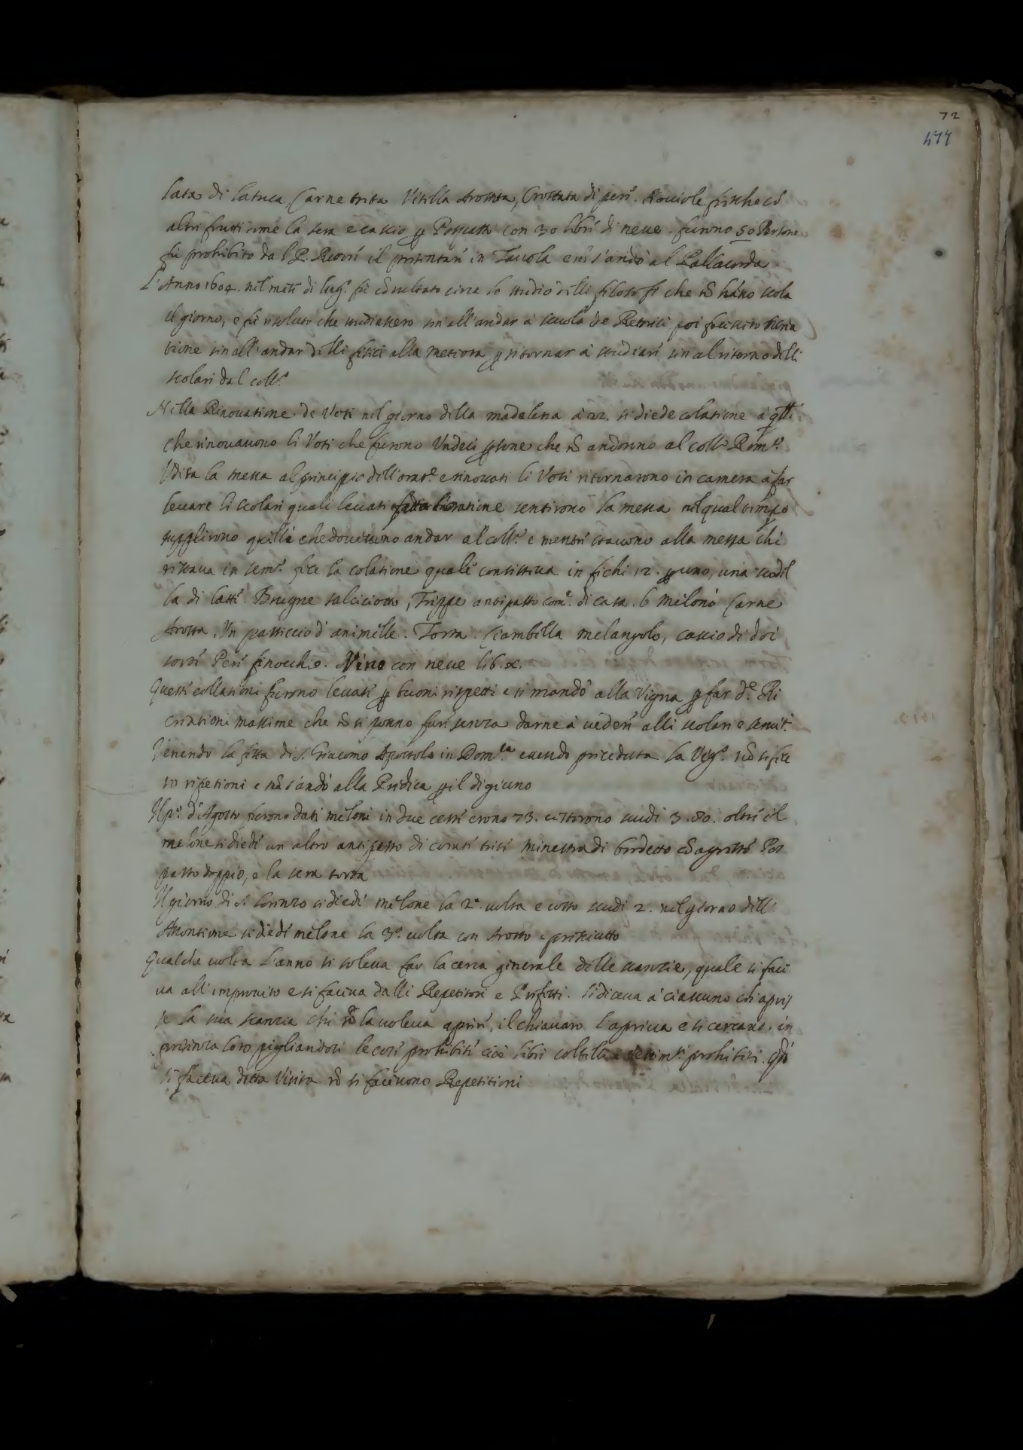 72
477
lata di latuca Carne trita Vitella Arostita, Crostata di peri. Nocciole fresche et
altri frutti come la sera e cascio p Possatti con 30 libri di neve. furono 50 Persone
fu prohibito dal P. Rettori il presentari in Tavola e non s'andò al Pallacorda
L'Anno 1604. nel mese di lug.º fu consultato circa lo studio delli filosofi che nõ hãno scola
il giorno, e fu risoluto che studiassero sin all'andar a scuola de Retorici poi facessero Recrea
tione sin all'andar delli fisici alla meteora p ritornar a studiari sin al ritorno delli
scolari dal coll.º
Nella Rinovatione de Voti nel giorno della madalena a 22. si diede colatione a qlli
che rinovavono li Voti che furono Undeci psone che nõ andorno al coll.º Rom.º
Udita la messa al principio dell'orat.e e rinovati li Voti ritornarono in camera a far
levare li scolari quali levati e fatta l'oratione sentirono la messa nel qual tempo
supplirono quelli che dovevano andar al coll.º e mentri stavono alla messa chi
restava in sem.º fece la colatione quale consisteva in fichi 12. p uno, una scudel
la di latti Brugne salciciotti, Trippe antipasto com.e di casa. 6 meloni Carne
Arosta. Un pasticcio d'animelle. Torta. Ciambella melangolo, cascio di doi
sorti Peri finocchio. Vino con neve lib. x.
Questi collationi furono levati p buoni rispetti e si mandò alla Vigna p far d.e Ri
creationi massime che nõ si ponno fari senza darne a vederi alli scolari e servit.i
Venendo la festa di S. Giacomo Apostolo in Dom.ca essendo preceduta la Vig.a nõ si fece
ro ripetioni e nõ s'andò alla Predica p il digiuno
Il p.º d'Agosto furono dati meloni in due cesti erono 73. costorono scudi 3.80. oltri il
melone si diedi un altro antipasto di cerati triti minestra di brodetto cõ agresti Pos
pasto doppio, e la sera torta
Il giorno di S. Lorenzo si diedi melone la 2.ª volta e costò scudi 2. nel giorno dell'
Assontione si diedi melone la 3.ª volta con Arosto e presciutto
Qualche volta l'anno si soleva far la cerca generale delle stanzie, quale si faci
va all'improviso e si faceva dalli Repetitori e Prefetti. Si diceva a ciascuno chi apris
se la sua stanzia chi nõ la voleva apriri, il chiavaro l'apriva e si cercavo in
presenza loro pigliandosi le cosi prohibiti cioè libri coltella prohibiti. Qñ
si faceva detta Visita nõ si facevono Repetitioni